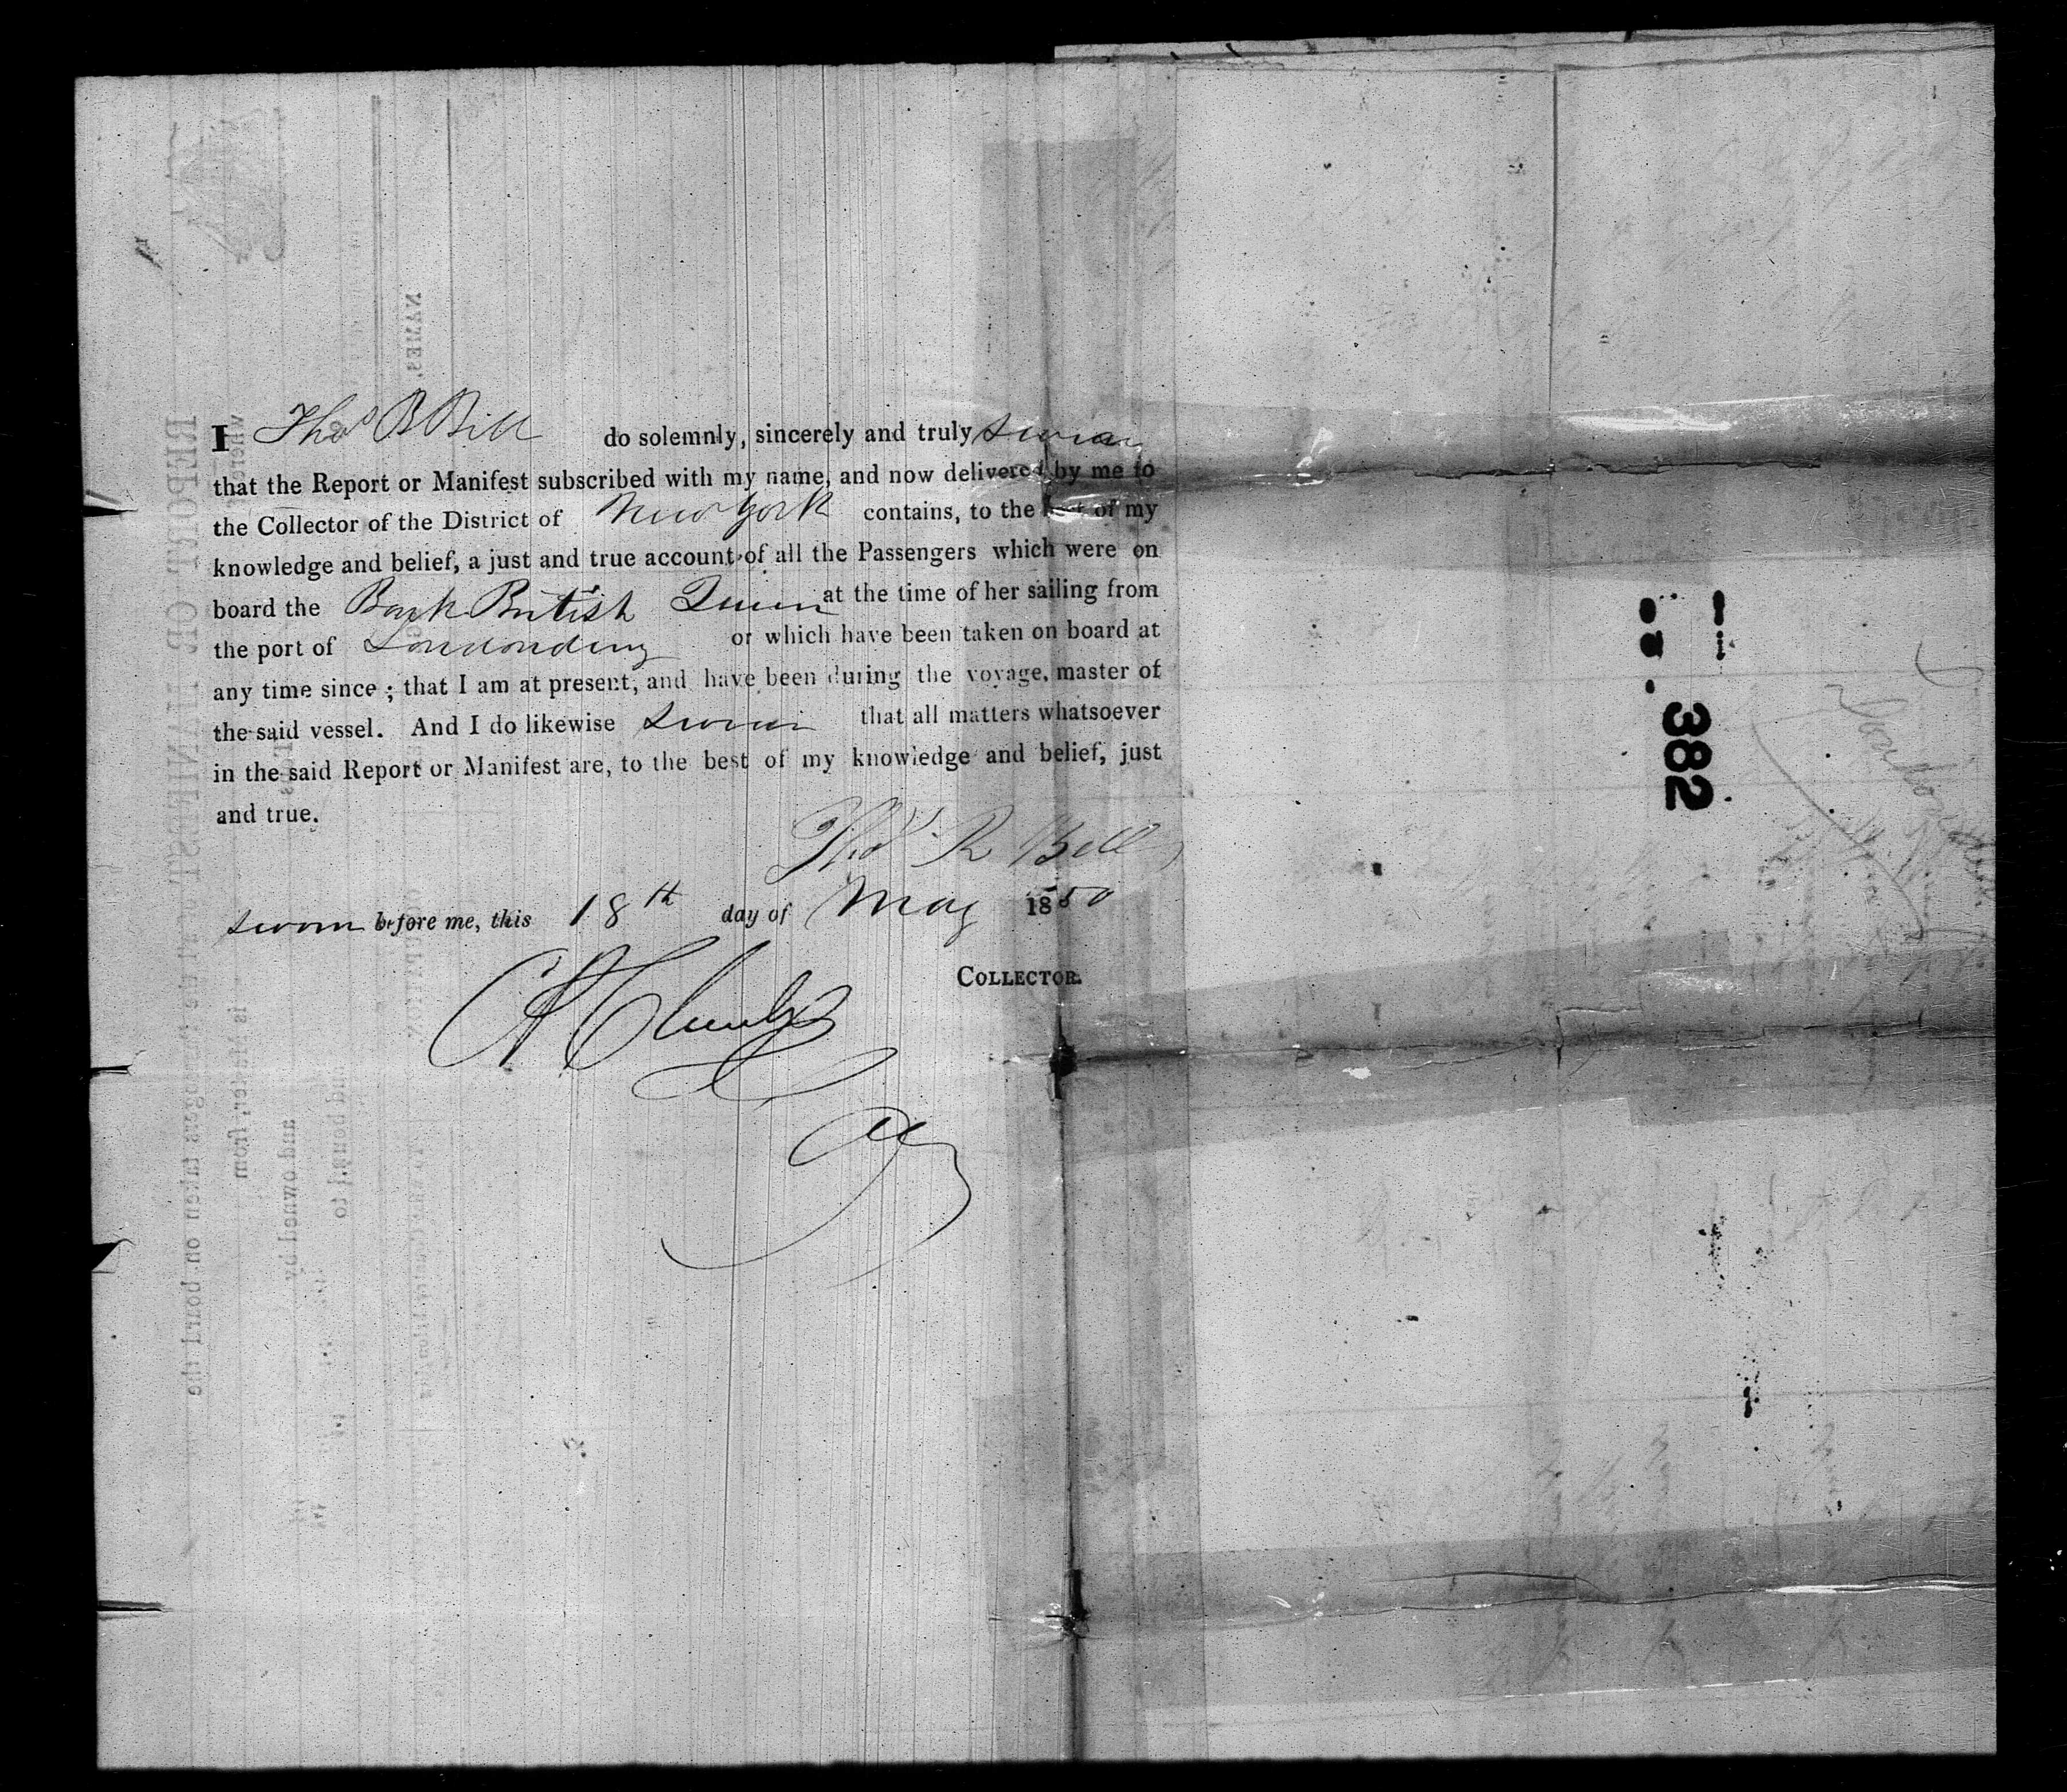 I Thos B Bill do solemnly, sincerely and truly swear
that the Report or Manifest subscribed with my name, and now delivered by me to
the Collector of the District of New York contains, to the best of my
knowledge and belief, a just and true account of all the Passengers which were on
board the Bark British Queen at the time of her sailing from
the port of Londonderry or which have been taken on board at
any time since; that I am at present, and have been during the voyage, master of
the said vessel. And I do likewise swear that all matters whatsoever
in the said Report or Manifest are, to the best of my knowledge and belief, just
and true.
Thos R Bell
sworn before me, this 18th day of May 1850
COLLECTOR.
382